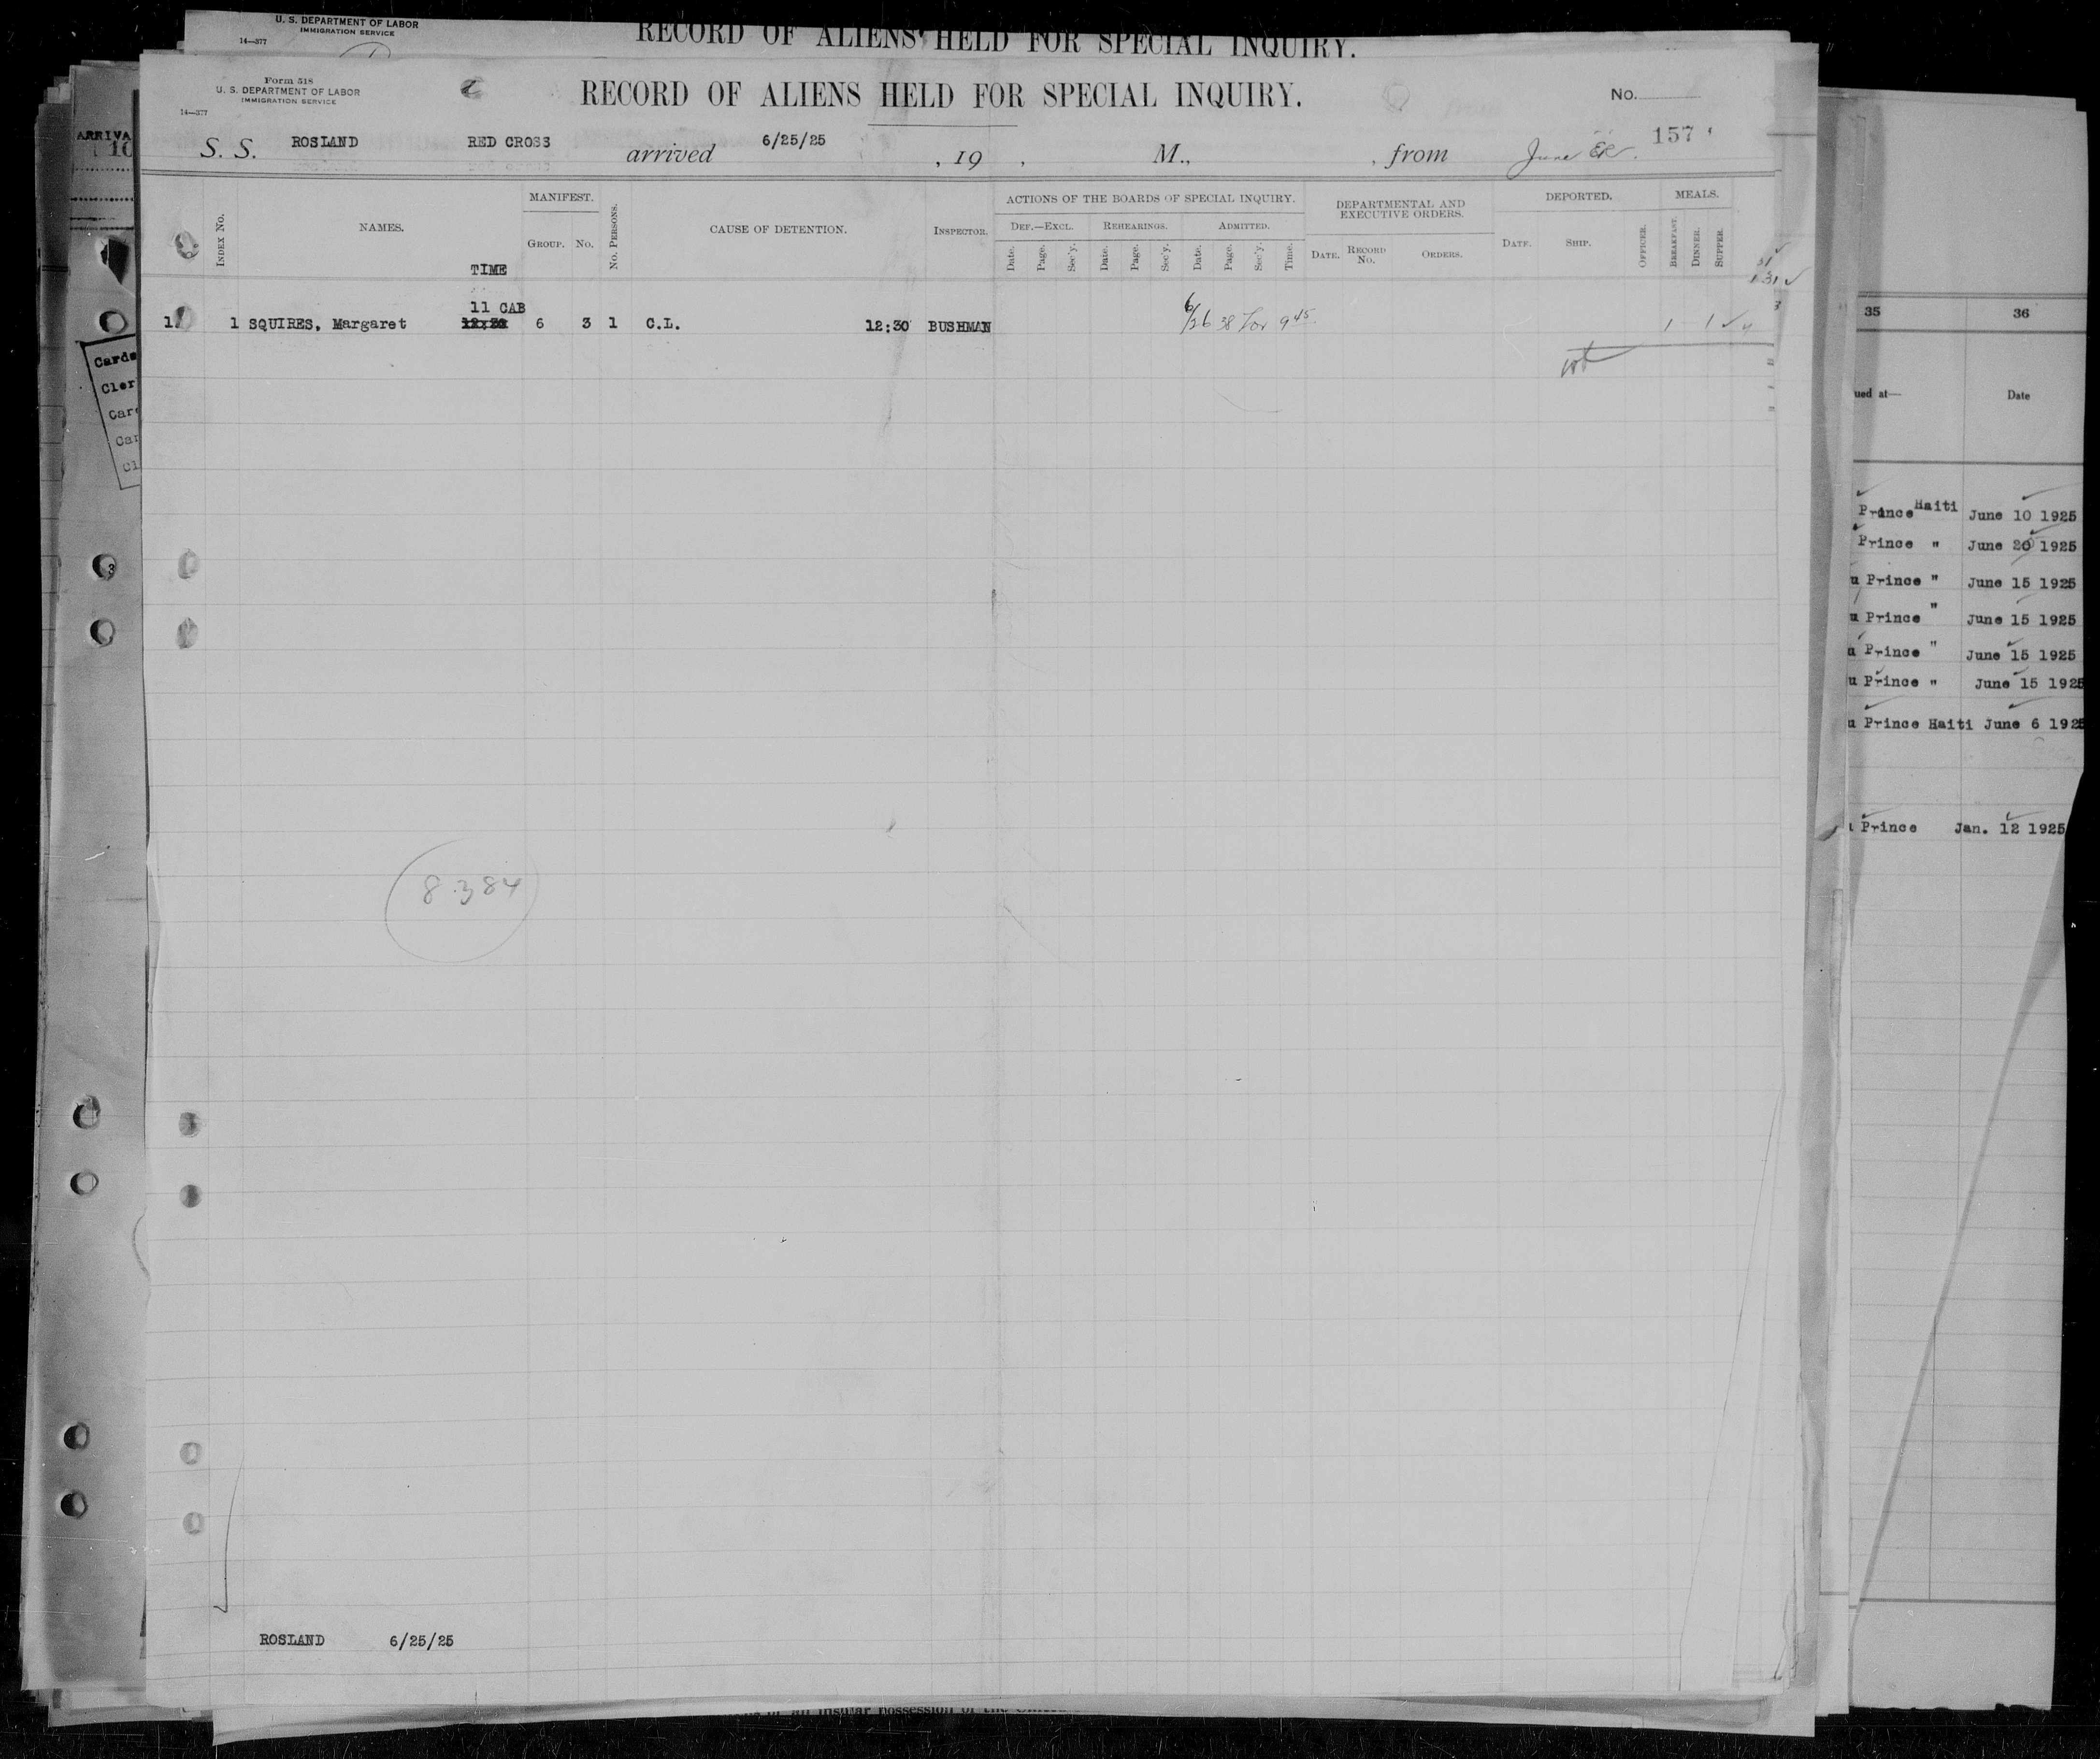 U. S. DEPARTMENT OF LABOR
IMMIGRATION SERVICE
14—377
RECORD OF ALIENS HELD FOR SPECIAL INQUIRY.
Form 518
U. S. DEPARTMENT OF LABOR
IMMIGRATION SERVICE
14—377
RECORD OF ALIENS HELD FOR SPECIAL INQUIRY.
No.
157
S. S. ROSLAND RED CROSS arrived 6/25/25 , 19 , M., , from June
INDEX No.
NAMES.
TIME
MANIFEST.
GROUP. No.
No. PERSONS.
CAUSE OF DETENTION.
INSPECTOR.
ACTIONS OF THE BOARDS OF SPECIAL INQUIRY.
DEF.—EXCL. REHEARINGS. ADMITTED.
Date. Page. Sec'y. Date. Page. Sec'y. Date. Page. Sec'y. Time.
DEPARTMENTAL AND
EXECUTIVE ORDERS.
DATE. RECORD No. ORDERS.
DEPORTED.
DATE. SHIP. OFFICER.
MEALS.
BREAKFAST. DINNER. SUPPER.
11 CAB
1 1 SQUIRES, Margaret 12:30 6 3 1 C.L. 12:30 BUSHMAN 6/26 38 9 45 1 1
8384
ROSLAND 6/25/25
ARRIVA
10
Cards
Cler
Card
Car
Cl
3
35 36
ued at— Date
Prince Haiti June 10 1925
Prince " June 20 1925
u Prince " June 15 1925
u Prince " June 15 1925
u Prince " June 15 1925
u Prince " June 15 1925
u Prince Haiti June 6 1925
Prince Jan. 12 1925